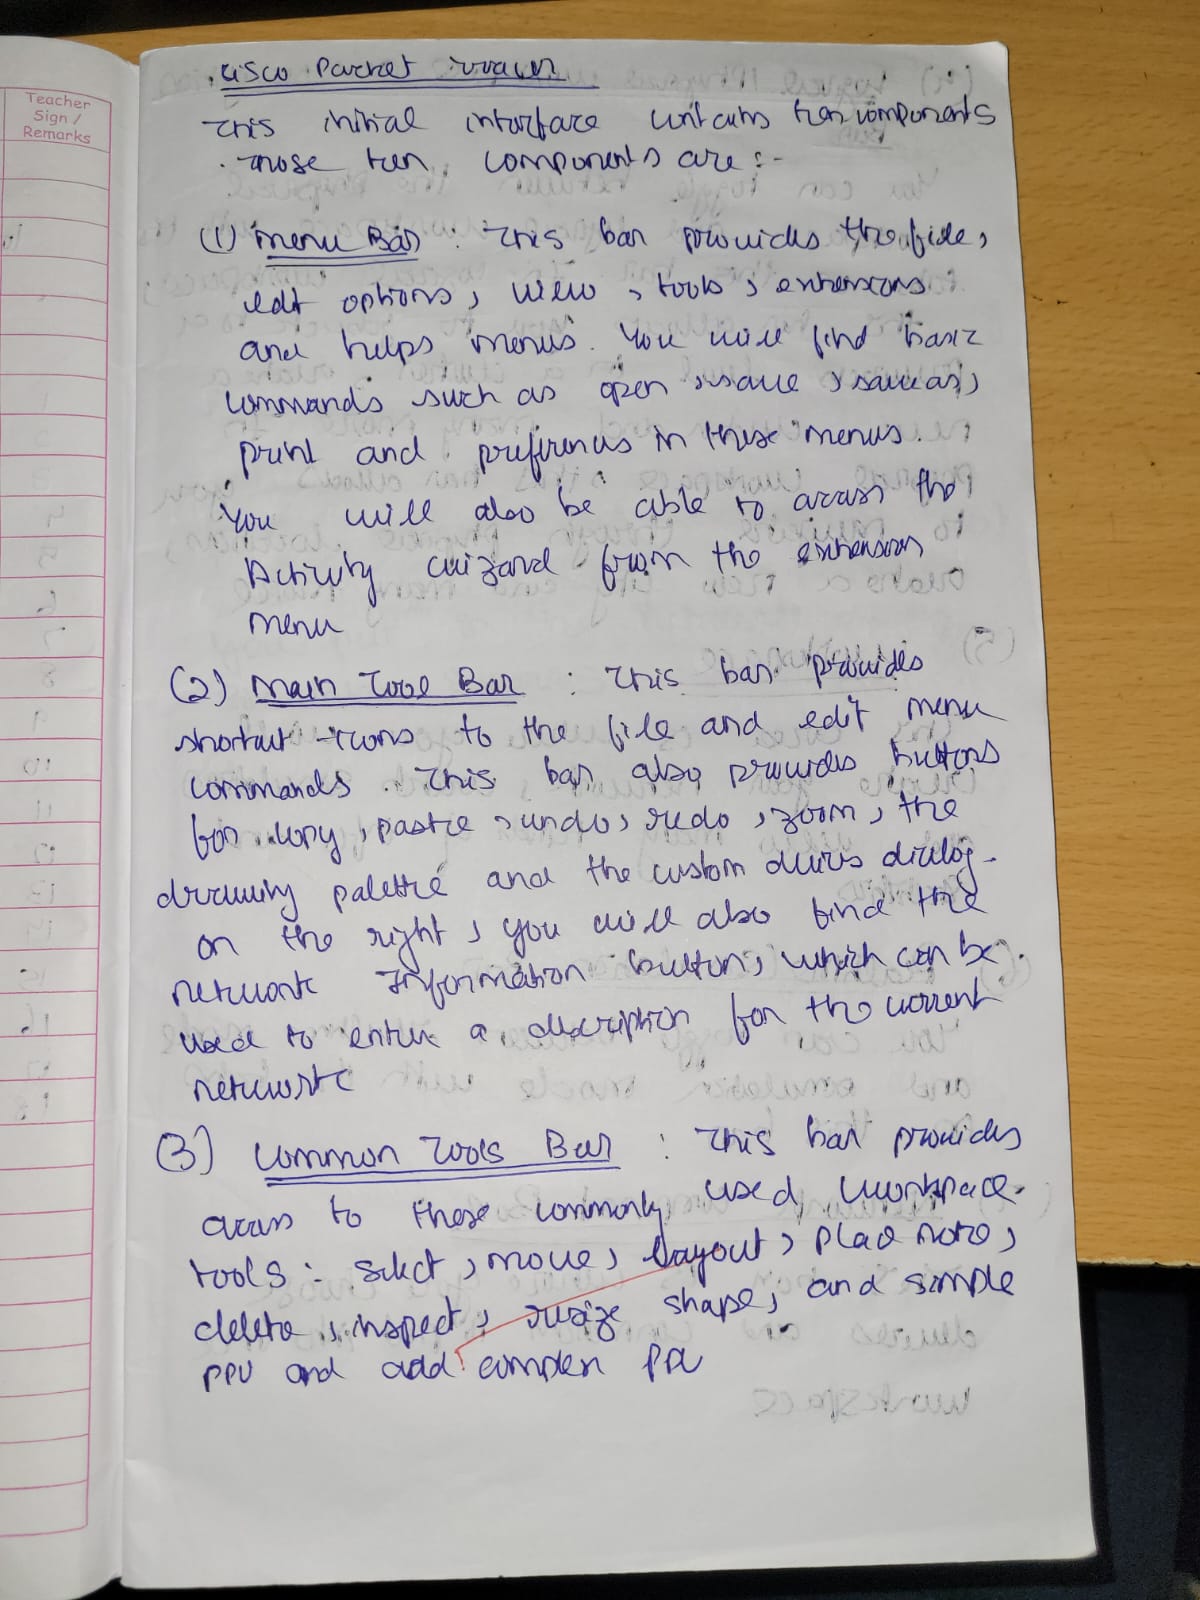 Teacher
Sign /
Remarks
Cisco Packet Tracer
This initial interface contains ten components
. Those ten components are :-
(1) Menu Bar : This bar provides the file,
edit options, view, tools, extensions
and helps menus. You will find basic
commands such as open, save, save as,
print and preferences in these menus.
You will also be able to access the
Activity wizard from the extensions
menu
(2) Main Tool Bar : This bar provides
shortcut icons to the file and edit menu
commands. This bar also provides buttons
for copy, paste, undo, redo, zoom, the
drawing palette and the custom devices dialog.
on the right, you will also find the
network Information button, which can be
used to enter a description for the current
network
(3) Common Tools Bar : This bar provides
access to these commonly used workspace
tools :- select, move, Layout, place note,
delete, inspect, resize shape, and simple
PPU and add complex PDU